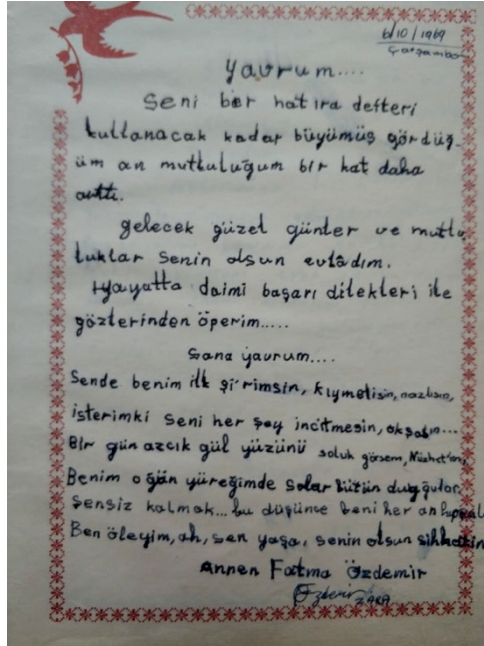 6/10/1969
Çarşamba
Yavrum....
Seni bir hatıra defteri
kullanacak kadar büyümüş gördüğ-
üm an mutluluğum bir kat daha
arttı.
gelecek güzel günler ve mutlu
luklar senin olsun evladım.
Hayatta daimi başarı dilekleri ile
gözlerinden öperim.....
Sana yavrum....
Sende benim ilk şi'rimsin, kıymetlisin, nazlısın,
isterimki seni her şey incitmesin, okşasın...
Bir gün azcık gül yüzünü soluk görsem, Nüzhet'im,
Benim oğün yüreğimde solar bütün duyğular,
Sensiz kalmak... bu düşünce beni her an
Ben öleyim, ah, sen yaşa, senin olsun sıhhatin
Annen Fatma Özdemir
Özdemir
ZARA